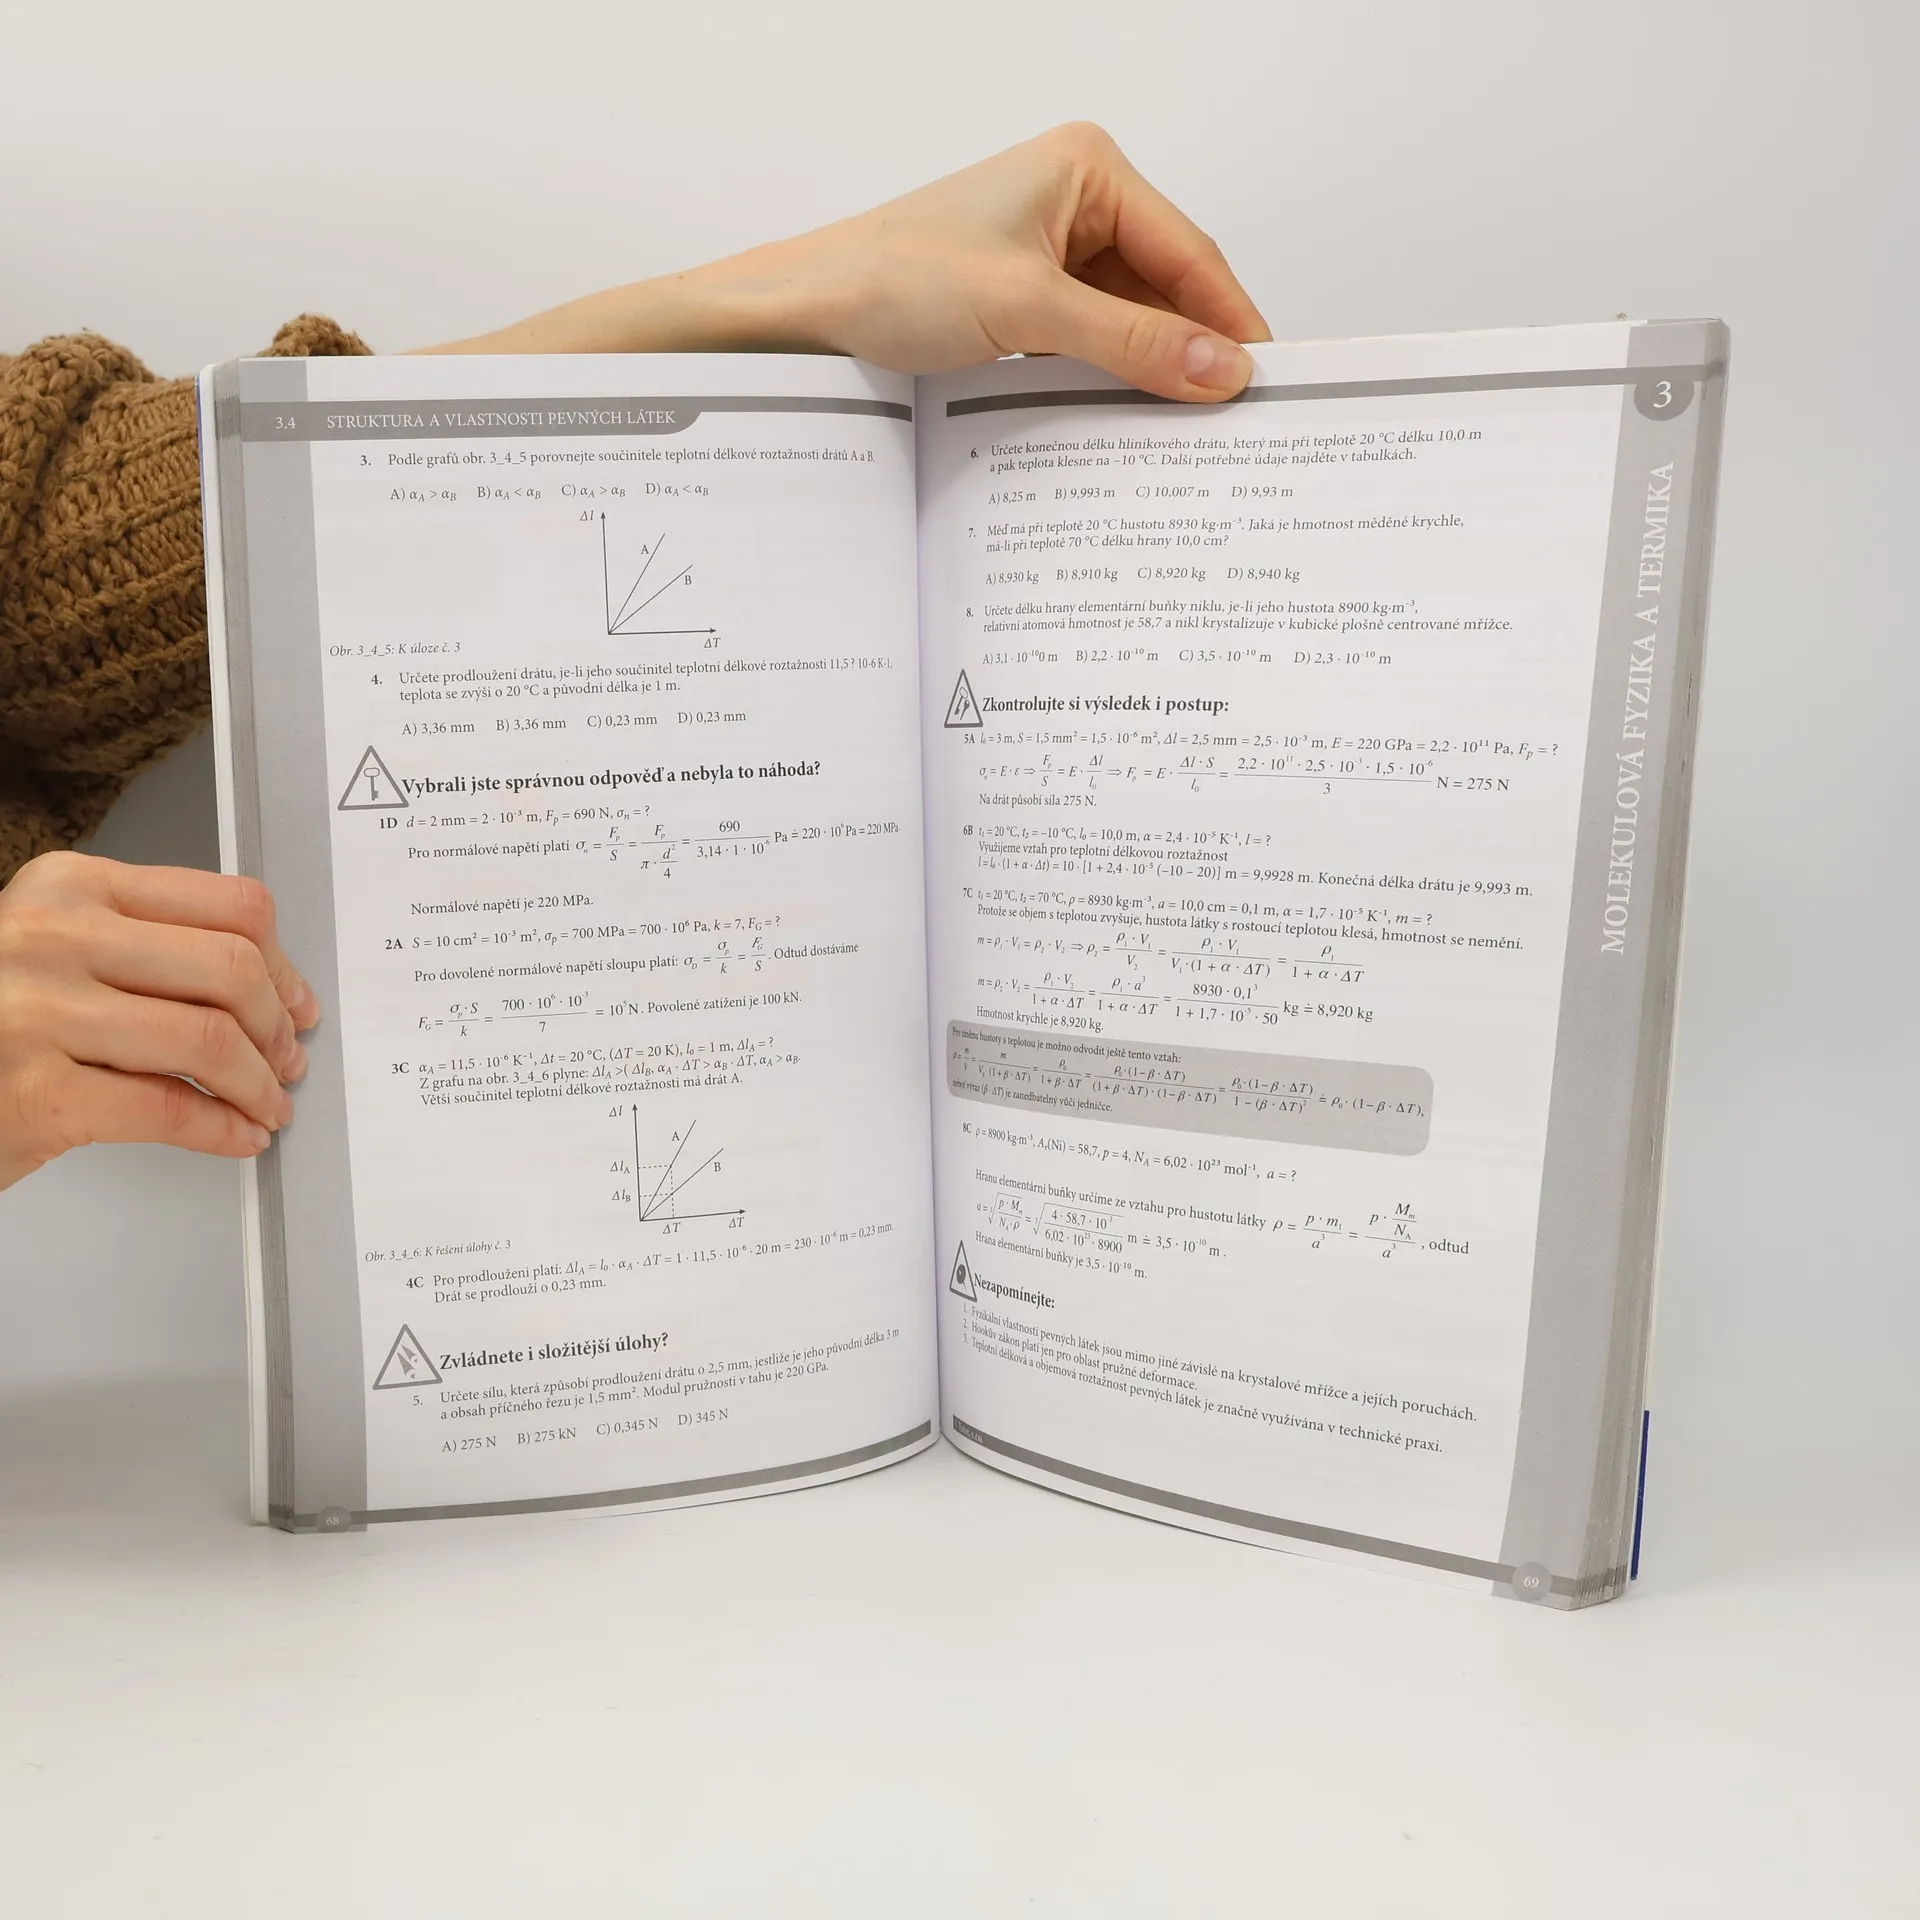 3.4 STRUKTURA A VLASTNOSTI PEVNÝCH LÁTEK
3. Podle grafů obr. 3_4_5 porovnejte součinitele teplotní délkové roztažnosti drátů A a B.
A) αA > αB B) αA < αB C) αA > αB D) αA < αB
Δl
A
B
ΔT
Obr. 3_4_5: K úloze č. 3
4. Určete prodloužení drátu, je-li jeho součinitel teplotní délkové roztažnosti 11,5 ? 10-6 K-1,
teplota se zvýši o 20 °C a původní délka je 1 m.
A) 3,36 mm B) 3,36 mm C) 0,23 mm D) 0,23 mm
Vybrali jste správnou odpověď a nebyla to náhoda?
1D d = 2 mm = 2 · 10⁻³ m, Fp = 690 N, σn = ?
Pro normálové napětí platí σn = Fp/S = Fp/(π · d²/4) = 690/(3,14 · 1 · 10⁻⁶) Pa ≐ 220 · 10⁶ Pa = 220 MPa.
Normálové napětí je 220 MPa.
2A S = 10 cm² = 10⁻³ m², σp = 700 MPa = 700 · 10⁶ Pa, k = 7, FG = ?
Pro dovolené normálové napětí sloupu platí: σD = σp/k = FG/S. Odtud dostáváme
FG = σp · S/k = 700 · 10⁶ · 10⁻³/7 = 10⁵ N. Povolené zatížení je 100 kN.
3C αA = 11,5 · 10⁻⁶ K⁻¹, Δt = 20 °C, (ΔT = 20 K), l₀ = 1 m, ΔlA = ?
Z grafu na obr. 3_4_6 plyne: ΔlA >( ΔlB, αA · ΔT > αB · ΔT, αA > αB.
Větší součinitel teplotní délkové roztažnosti má drát A.
Δl
A
ΔlA
B
ΔlB
ΔT ΔT
Obr. 3_4_6: K řešení úlohy č. 3
4C Pro prodloužení platí: ΔlA = l₀ · αA · ΔT = 1 · 11,5 · 10⁻⁶ · 20 m = 230 · 10⁻⁶ m = 0,23 mm.
Drát se prodlouží o 0,23 mm.
Zvládnete i složitější úlohy?
5. Určete sílu, která způsobí prodloužení drátu o 2,5 mm, jestliže je jeho původní délka 3 m
a obsah příčného řezu je 1,5 mm². Modul pružnosti v tahu je 220 GPa.
A) 275 N B) 275 kN C) 0,345 N D) 345 N
68
3
MOLEKULOVÁ FYZIKA A TERMIKA
6. Určete konečnou délku hliníkového drátu, který má při teplotě 20 °C délku 10,0 m
a pak teplota klesne na −10 °C. Další potřebné údaje najděte v tabulkách.
A) 8,25 m B) 9,993 m C) 10,007 m D) 9,93 m
7. Měď má při teplotě 20 °C hustotu 8930 kg·m⁻³. Jaká je hmotnost měděné krychle,
má-li při teplotě 70 °C délku hrany 10,0 cm?
A) 8,930 kg B) 8,910 kg C) 8,920 kg D) 8,940 kg
8. Určete délku hrany elementární buňky niklu, je-li jeho hustota 8900 kg·m⁻³,
relativní atomová hmotnost je 58,7 a nikl krystalizuje v kubické plošně centrované mřížce.
A) 3,1 · 10⁻¹⁰0 m B) 2,2 · 10⁻¹⁰ m C) 3,5 · 10⁻¹⁰ m D) 2,3 · 10⁻¹⁰ m
Zkontrolujte si výsledek i postup:
5A l₀ = 3 m, S = 1,5 mm² = 1,5 · 10⁻⁶ m², Δl = 2,5 mm = 2,5 · 10⁻³ m, E = 220 GPa = 2,2 · 10¹¹ Pa, Fp = ?
σn = E · ε ⇒ Fp/S = E · Δl/l₀ ⇒ Fp = E · Δl · S/l₀ = 2,2 · 10¹¹ · 2,5 · 10⁻³ · 1,5 · 10⁻⁶/3 N = 275 N
Na drát působí síla 275 N.
6B t₁ = 20 °C, t₂ = −10 °C, l₀ = 10,0 m, α = 2,4 · 10⁻⁵ K⁻¹, l = ?
Využijeme vztah pro teplotní délkovou roztažnost
l = l₀ · (1 + α · Δt) = 10 · [1 + 2,4 · 10⁻⁵ (−10 − 20)] m = 9,9928 m. Konečná délka drátu je 9,993 m.
7C t₁ = 20 °C, t₂ = 70 °C, ρ = 8930 kg·m⁻³, a = 10,0 cm = 0,1 m, α = 1,7 · 10⁻⁵ K⁻¹, m = ?
Protože se objem s teplotou zvyšuje, hustota látky s rostoucí teplotou klesá, hmotnost se nemění.
m = ρ₁ · V₁ = ρ₂ · V₂ ⇒ ρ₂ = ρ₁ · V₁/V₂ = ρ₁ · V₁/(V₁ · (1 + α · ΔT)) = ρ₁/(1 + α · ΔT)
m = ρ₂ · V₂ = ρ₁ · V₂/(1 + α · ΔT) = ρ₁ · a³/(1 + α · ΔT) = 8930 · 0,1³/(1 + 1,7 · 10⁻⁵ · 50) kg ≐ 8,920 kg
Hmotnost krychle je 8,920 kg.
Pro změnu hustoty s teplotou je možno odvodit ještě tento vztah:
ρ = m/V = m/(V₀ · (1 + β · ΔT)) = ρ₀/(1 + β · ΔT) = ρ₀ · (1 − β · ΔT)/((1 + β · ΔT) · (1 − β · ΔT)) = ρ₀ · (1 − β · ΔT)/(1 − (β · ΔT)²) ≐ ρ₀ · (1 − β · ΔT),
neboť výraz (β · ΔT) je zanedbatelný vůči jedničce.
8C ρ = 8900 kg·m⁻³, Ar(Ni) = 58,7, p = 4, NA = 6,02 · 10²³ mol⁻¹, a = ?
Hranu elementární buňky určíme ze vztahu pro hustotu látky ρ = p · m₁/a³ = p · (Mm/NA)/a³, odtud
a = ³√(p · Mm/(NA · ρ)) = ³√(4 · 58,7 · 10⁻³/(6,02 · 10²³ · 8900)) m ≐ 3,5 · 10⁻¹⁰ m.
Hrana elementární buňky je 3,5 · 10⁻¹⁰ m.
Nezapomínejte:
1. Fyzikální vlastnosti pevných látek jsou mimo jiné závislé na krystalové mřížce a jejích poruchách.
2. Hookův zákon platí jen pro oblast pružné deformace.
3. Teplotní délková a objemová roztažnost pevných látek je značně využívána v technické praxi.
69